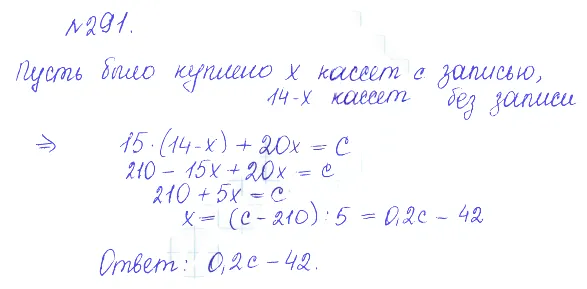 №291.
Пусть было куплено x кассет с записью,
14-x кассет без записи
⇒ 15·(14-x) + 20x = c
210 - 15x + 20x = c
210 + 5x = c
x = (c - 210) : 5 = 0,2c - 42
Ответ: 0,2c - 42.